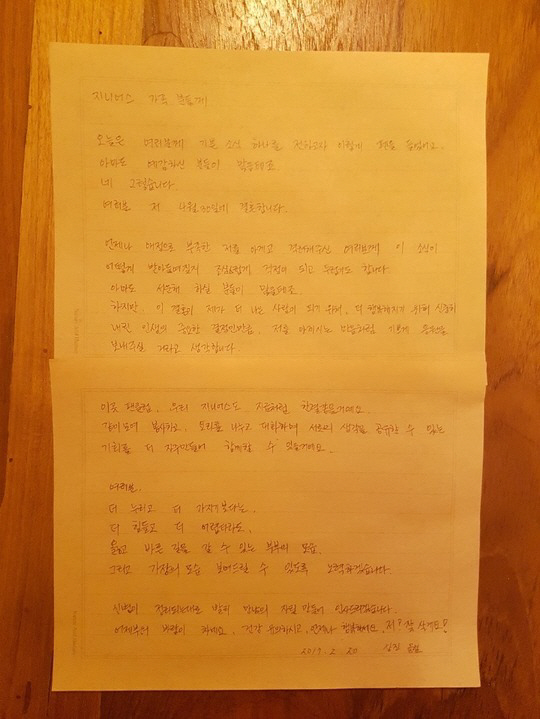 지니어스 가족 분들께
오늘은 여러분께 기쁜 소식 하나를 전하고자 이렇게 펜을 들었어요.
아마도 예감하신 분들이 많을테죠
네 그렇습니다.
여러분 저 4월 20일에 결혼합니다.
언제나 애정으로 부족한 저를 아끼고 걱정해주신 여러분께 이 소식이
어떻게 받아들여질지 조심스럽게 걱정이 되고 두렵기도 합니다
아마도 서운해 하실 분들이 많을테죠
하지만, 이 결혼이 제가 더 나은 사람이 되기 위해, 더 행복해지기 위해 신중히
내린 인생의 중요한 결정인만큼, 저를 아끼시는 마음처럼 기쁘게 응원을
보내주실 거라고 생각합니다.
이곳 팬클럽, 우리 지니어스도 지금처럼 한결같을거예요.
같이 모여 봉사하고, 요리를 나누고 대화하며 서로의 생각을 공유할 수 있는
기회를 더 자주 만들어 함께할 수 있을거예요.
여러분.
더 누리고 더 가지기보다는.
더 힘들고 더 어렵더라도.
옳고 바른 길을 갈 수 있는 부부의 모습.
그리고 가장의 모습 보여드릴 수 있도록 노력하겠습니다.
신변이 정리되는대로 빨리 만남의 자릴 만들어 인사드리겠습니다.
바람이 차네요. 건강 유의하시고, 언제나 행복하세요. 저! 잘 살게요!!
2019. 2. 20 김진